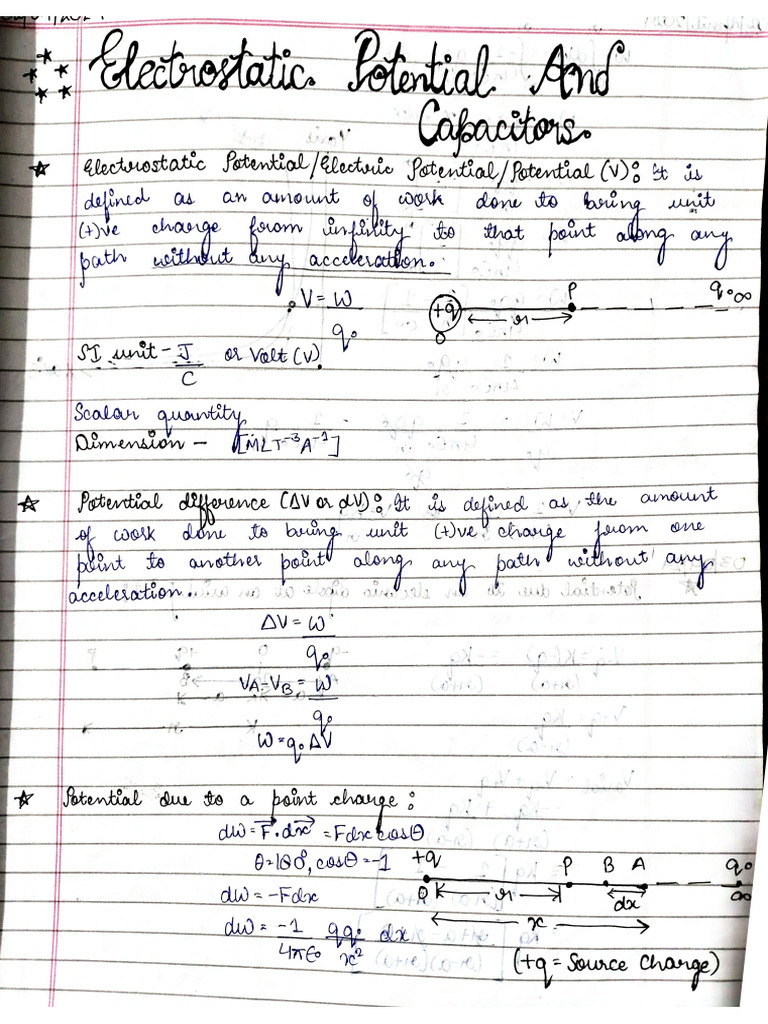 Electrostatic Potential And
Capacitors.
Electrostatic Potential/Electric Potential/Potential (V): It is
defined as an amount of work done to bring unit
(+)ve charge from infinity to that point along any
path without any acceleration.
V = W/q₀
+q O r P q₀ ∞
SI unit - J/C or Volt (V).
Scalar quantity
Dimension - [MLT⁻³A⁻¹]
Potential difference (ΔV or dV): It is defined as the amount
of work done to bring unit (+)ve charge from one
point to another point along any path without any
acceleration.
ΔV = W/q₀
VA - VB = W/q₀
W = q₀ ΔV
Potential due to a point charge:
dw = F⃗.dx⃗ = Fdx cosθ
θ = 180°, cosθ = -1
dw = -Fdx
dw = -1/4πε₀ qq₀/x² dx
+q O r P B A q₀ ∞
dx
x
(+q = Source Charge)